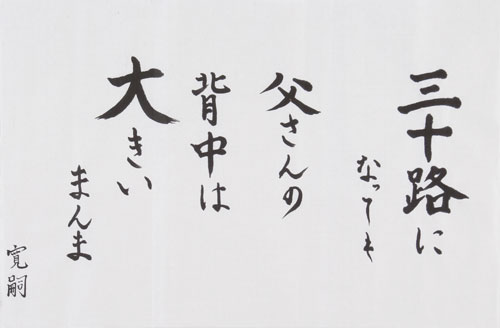 三十路に
なっても
父さんの
背中は
大きい
まんま
寛嗣